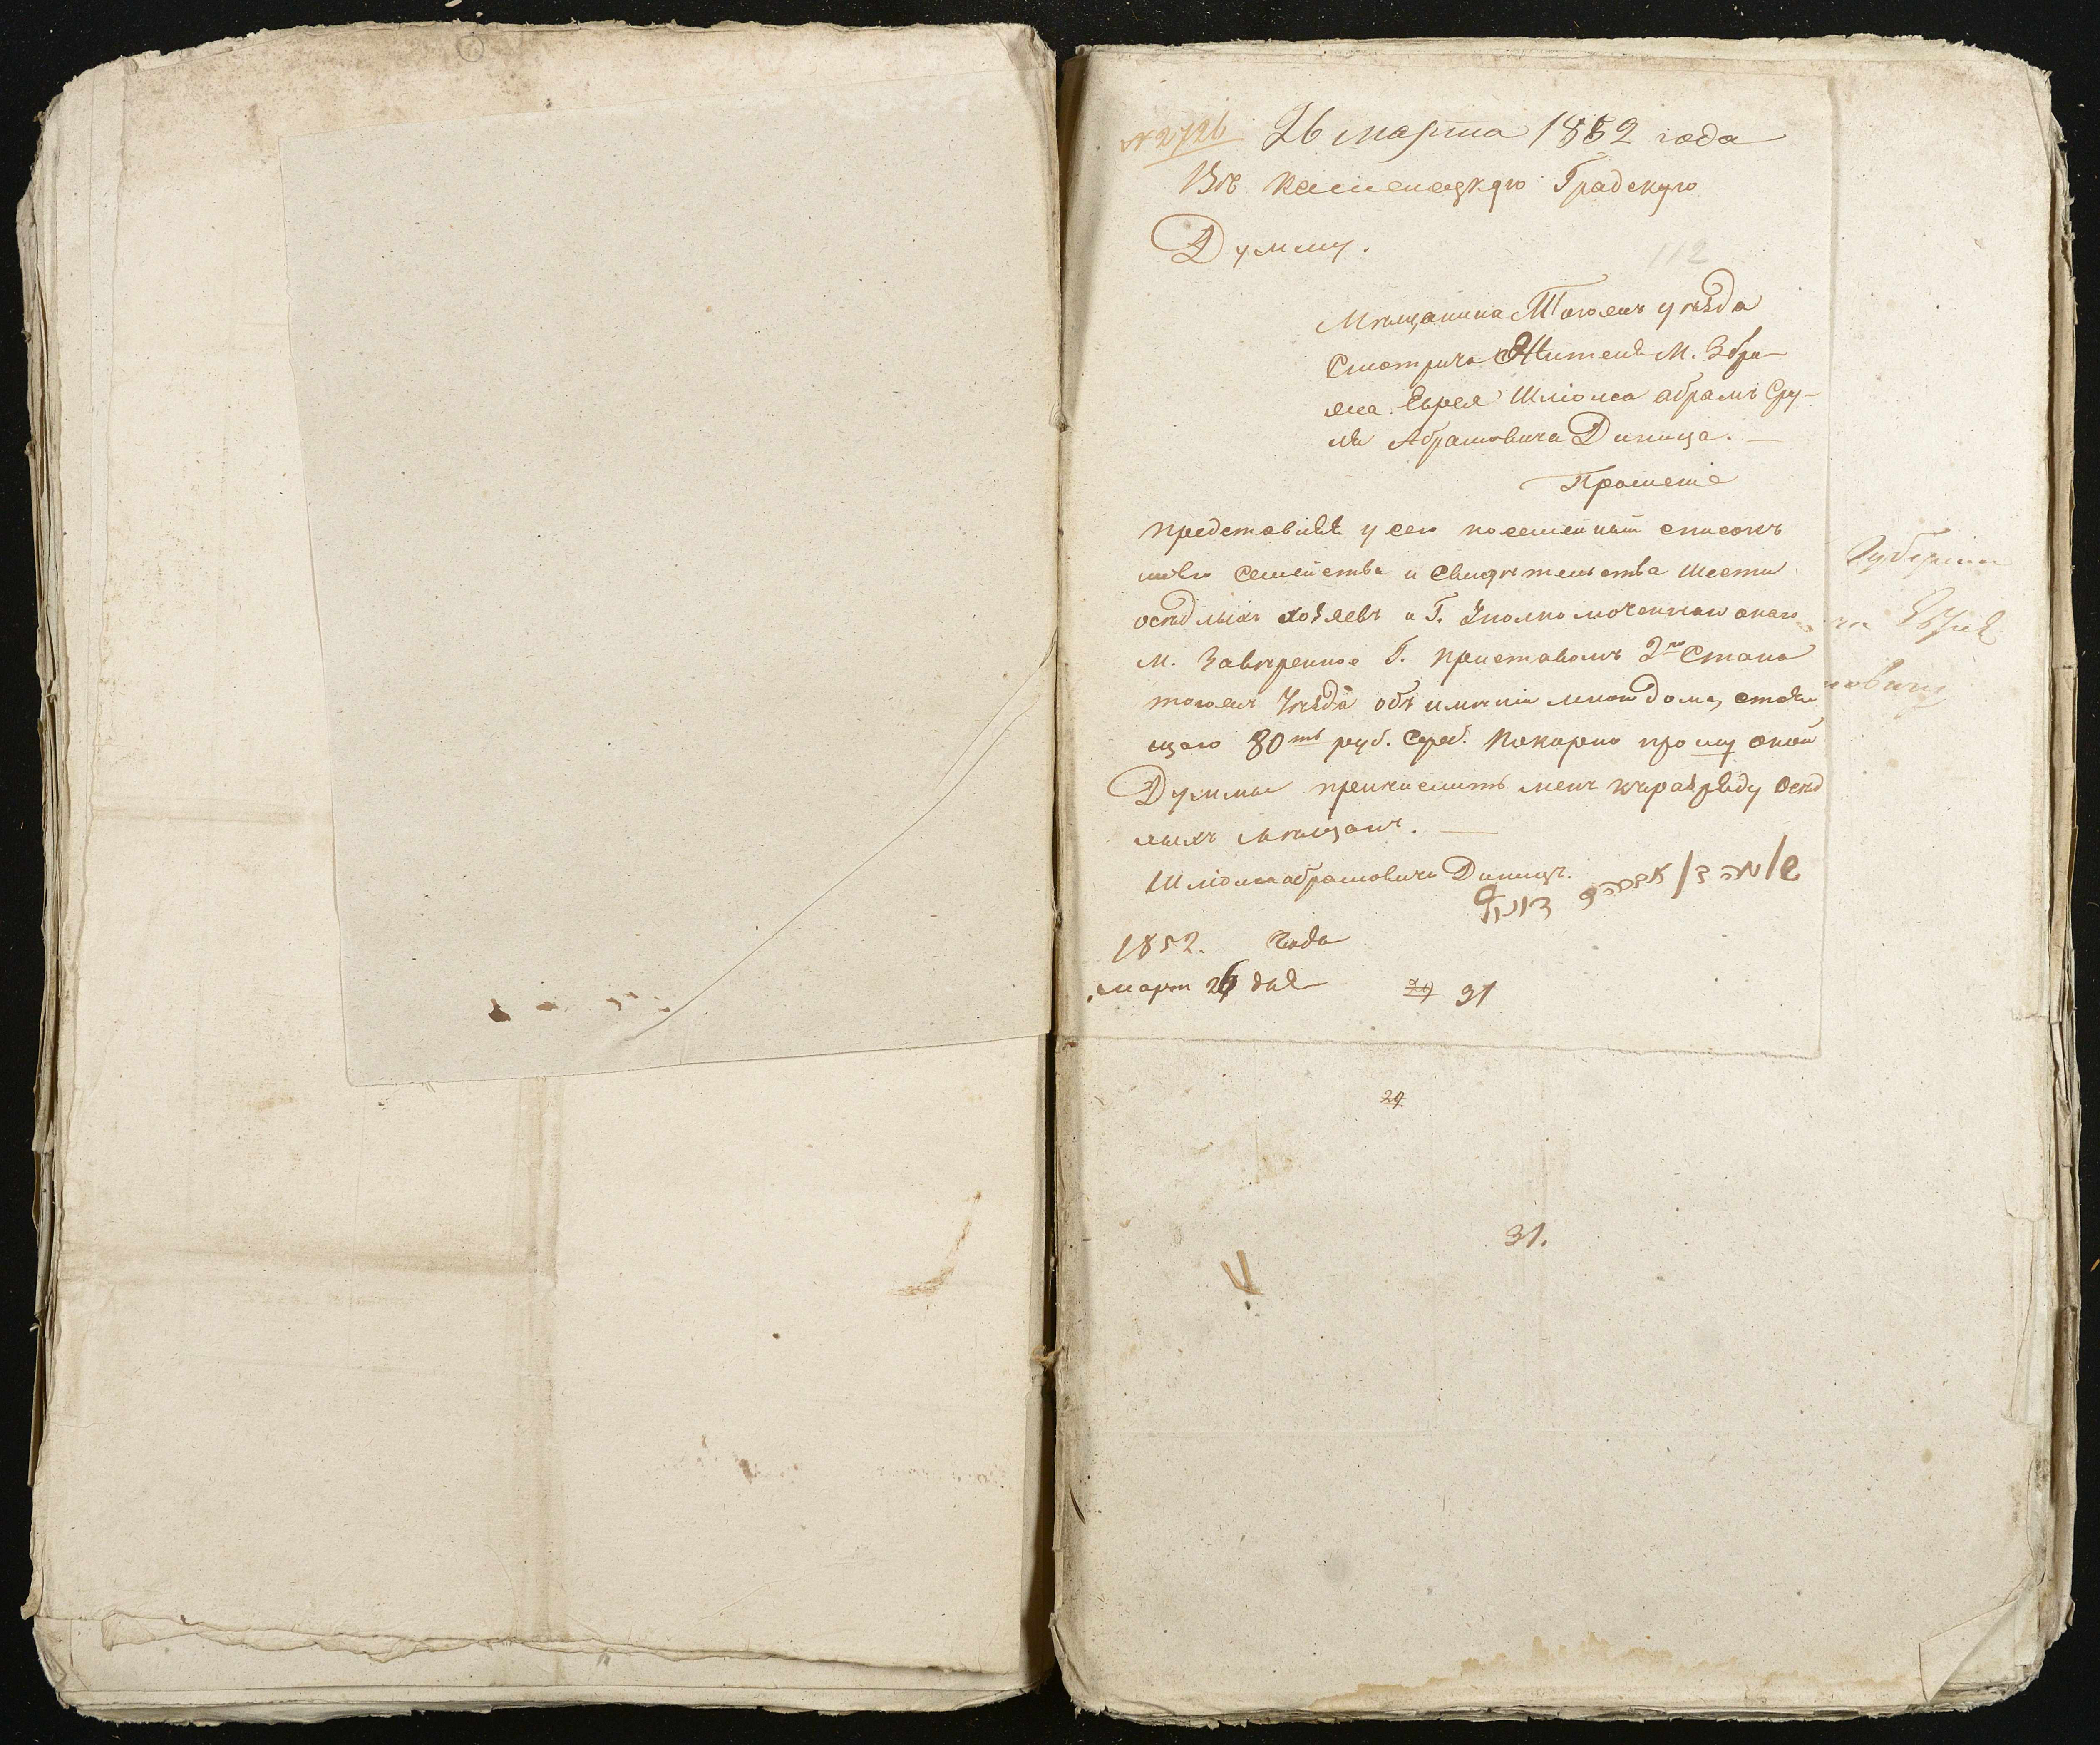 № 2726 26 марта 1852 года
Въ Каменецкую Градскую
Думму.
112
Мѣщанина Тогожъ уѣзда
Смотрича Жителя М. Збри-
жка. Еврея Шліома Абрамъ Сру-
ля Абрамовича Диница. —
Прошеніе
Представляя у сего посемейный списокъ
моего семейства и свидѣтельства шести
осѣдлыхъ хозяевъ и Г. Уполномоченнаго онаго
М. Завѣренное Г. Приставомъ 2го Стана
тогожъ Уѣзда объ имѣніи мною дома, стою
щаго 80тъ руб. Сереб. Покорно прошу оной
Думмы причислить менѣ къ разряду Осѣд
лыхъ мѣщанъ. —
Шліома Абрамовичъ Диницъ.
שלמה ב אברהם דיניץ
1852. Года
март 26 дня
29 31
29
31.
Губерніи
новичу